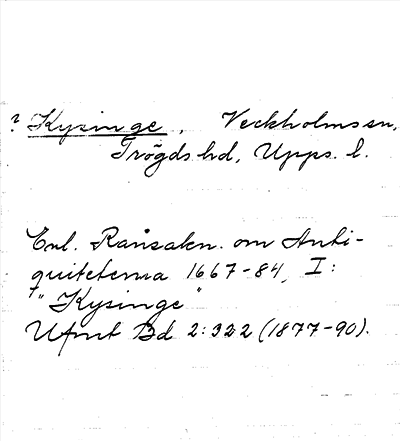 ? Kysinge, Veckholms sn,
Trögds hd, Upps. l.
Enl. Ransakn. om Anti-
quiteterna 1667-84, I:
"Kysinge"
Ufmt Bd 2:322 (1877-90).